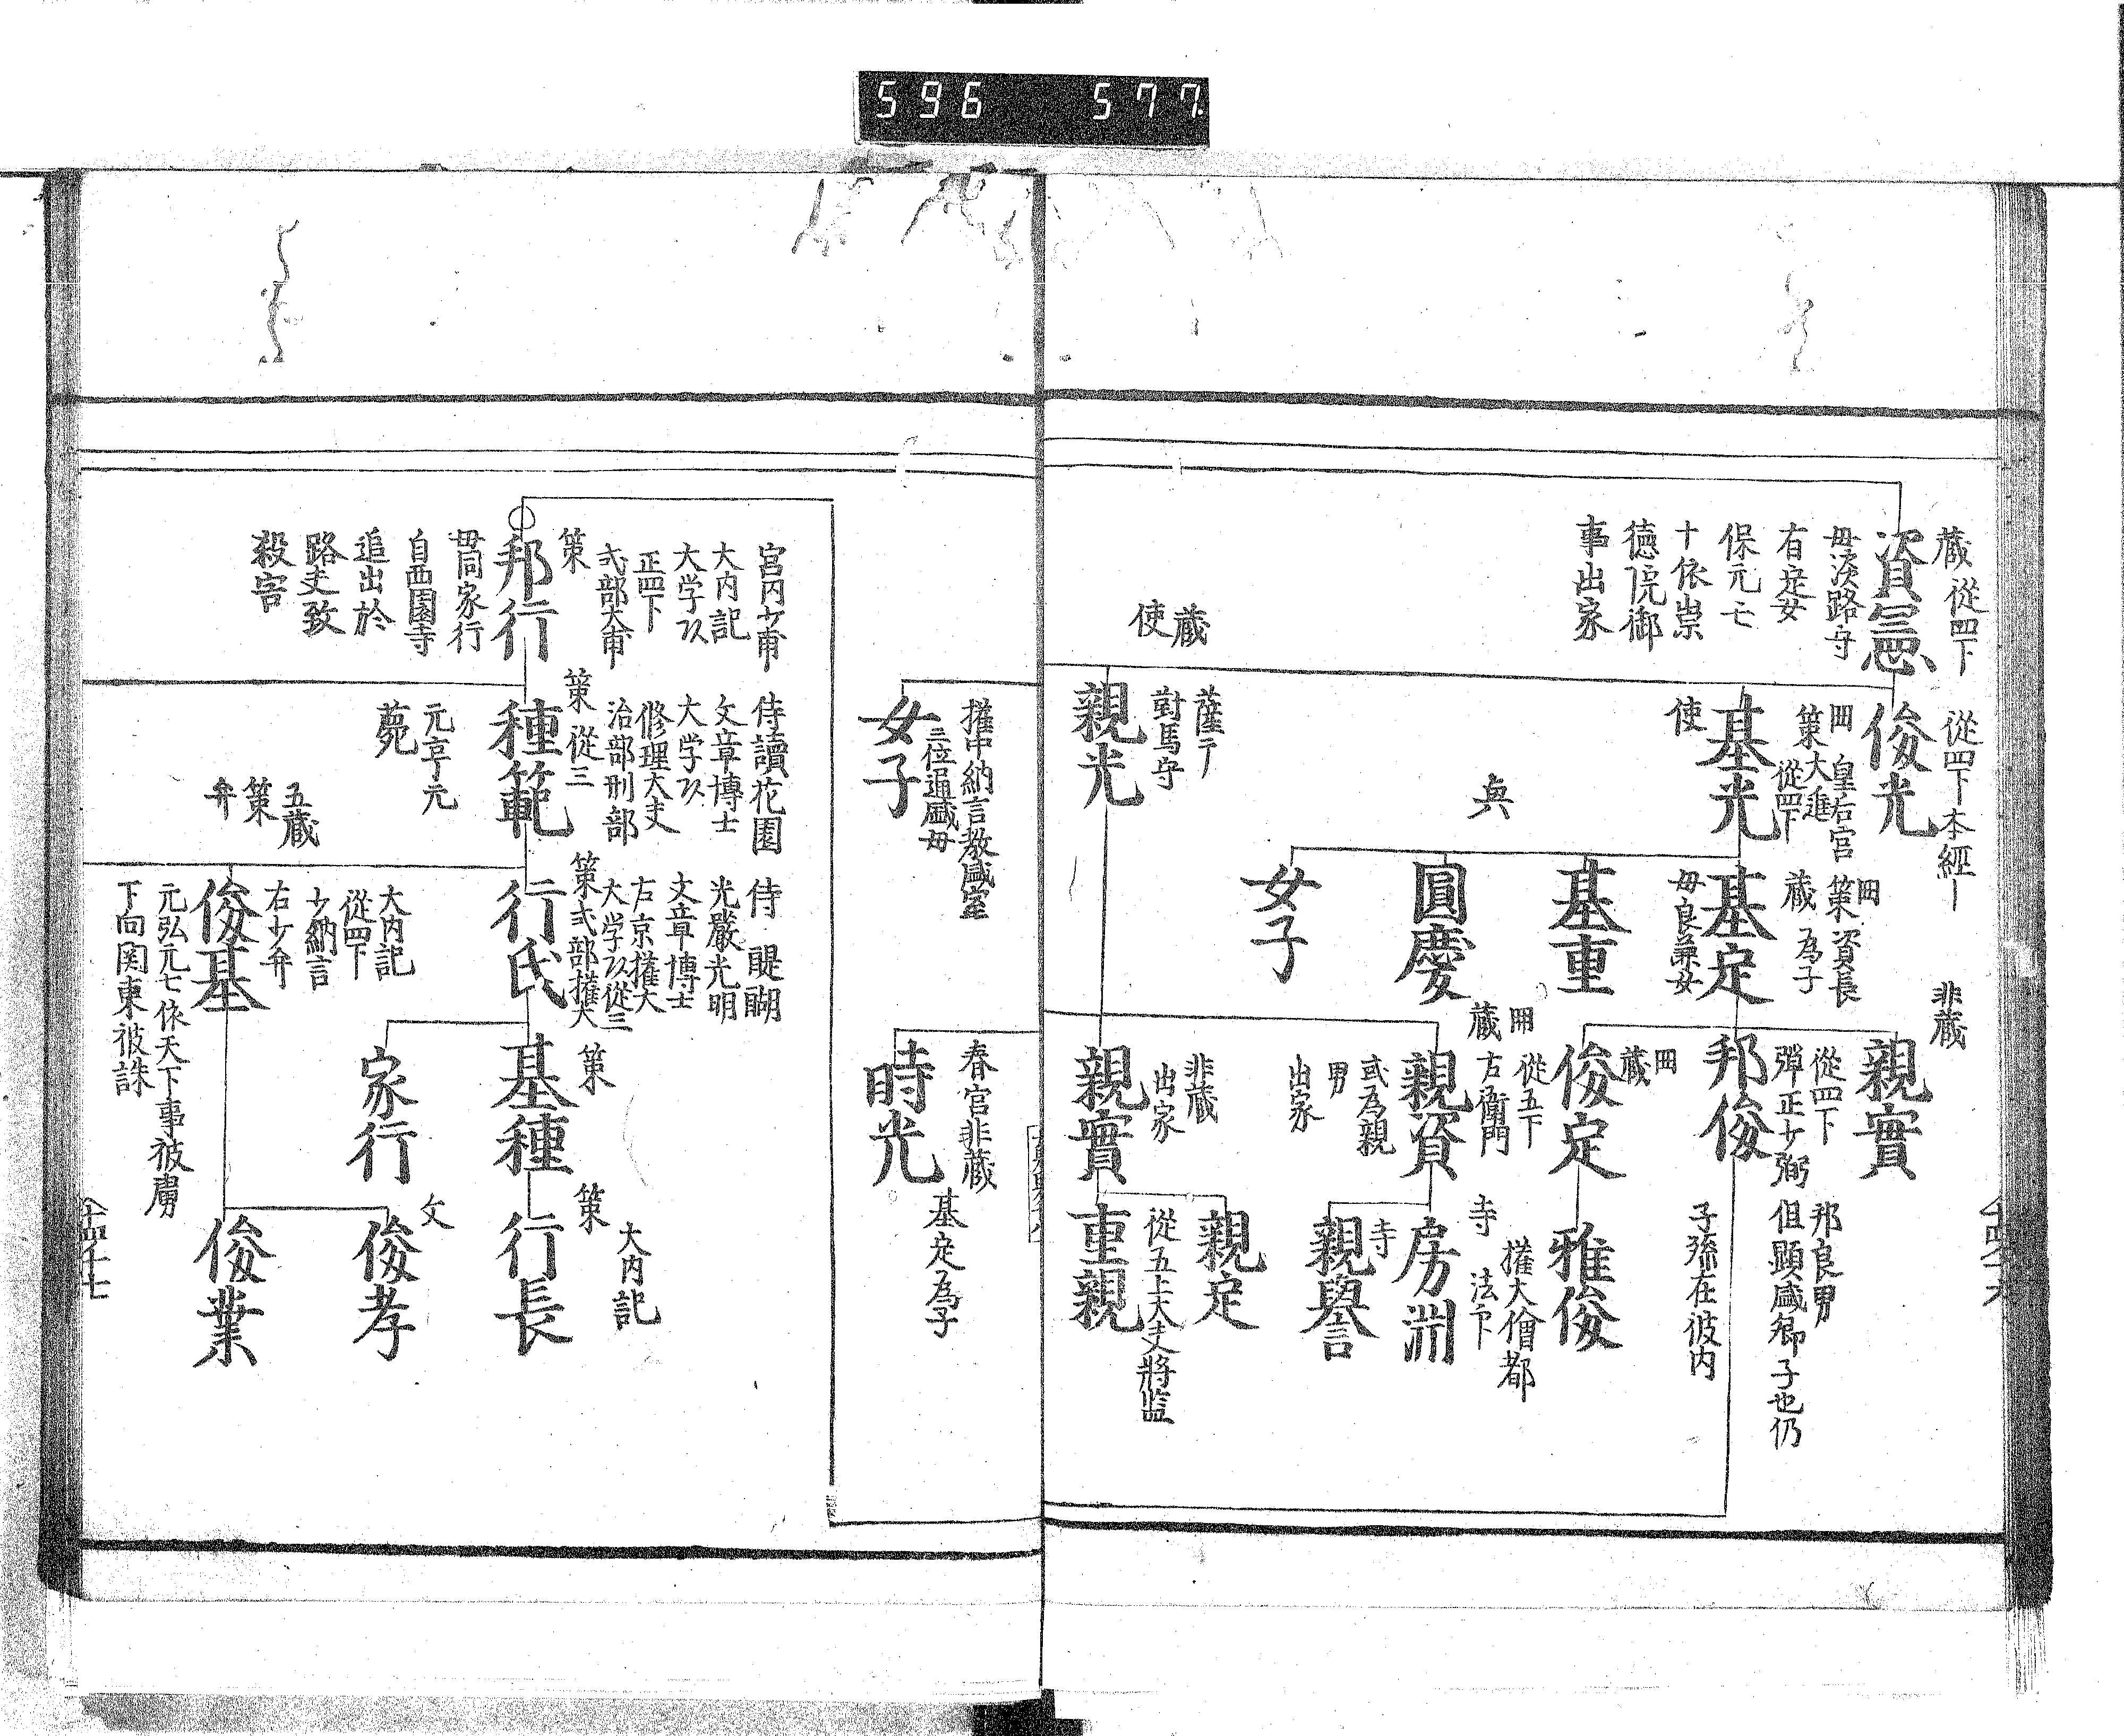 596 577
蔵 從四下
資憲
母淡路守
有定女
保元二亡
十依崇
徳院御
事出家
從四下本經
俊光
皇后宮
大進
策
從四下
基光
使
策 資長
蔵 為子
基定
母良兼女
基重
圓慶
女子
典
蔵
使
薩
對馬守
親光
非蔵
親實
從四下
彈正少弼
邦俊
邦良男
但顕盛卿子也仍
子孫在彼内
蔵
俊定
從五下
雅俊
蔵
右衛門
親資
或為親
男
出家
寺 法印
權大僧都
房渕
寺
親譽
非蔵
出家
親實
親定
從五上大夫將監
重親
權中納言教盛室
三位通盛母
女子
春宮非蔵
基定為子
時光
宮内少甫
大内記
大学頭
正四下
式部大甫
策
邦行
母同家行
自西園寺
追出於
路夫致
殺害
侍讀花園
文章博士
大学頭
修理大夫
治部刑部
策 從三
種範
元亨元
薨
侍 醍醐
光嚴光明
文章博士
右京權大
大学頭從三
策式部權大
行氏
五蔵
策
弁
大内記
從四下
少納言
右少弁
俊基
元弘元七依天下事被虜
下向関東被誅
策
基種
家行
大内記
策
行長
文
俊孝
俊業